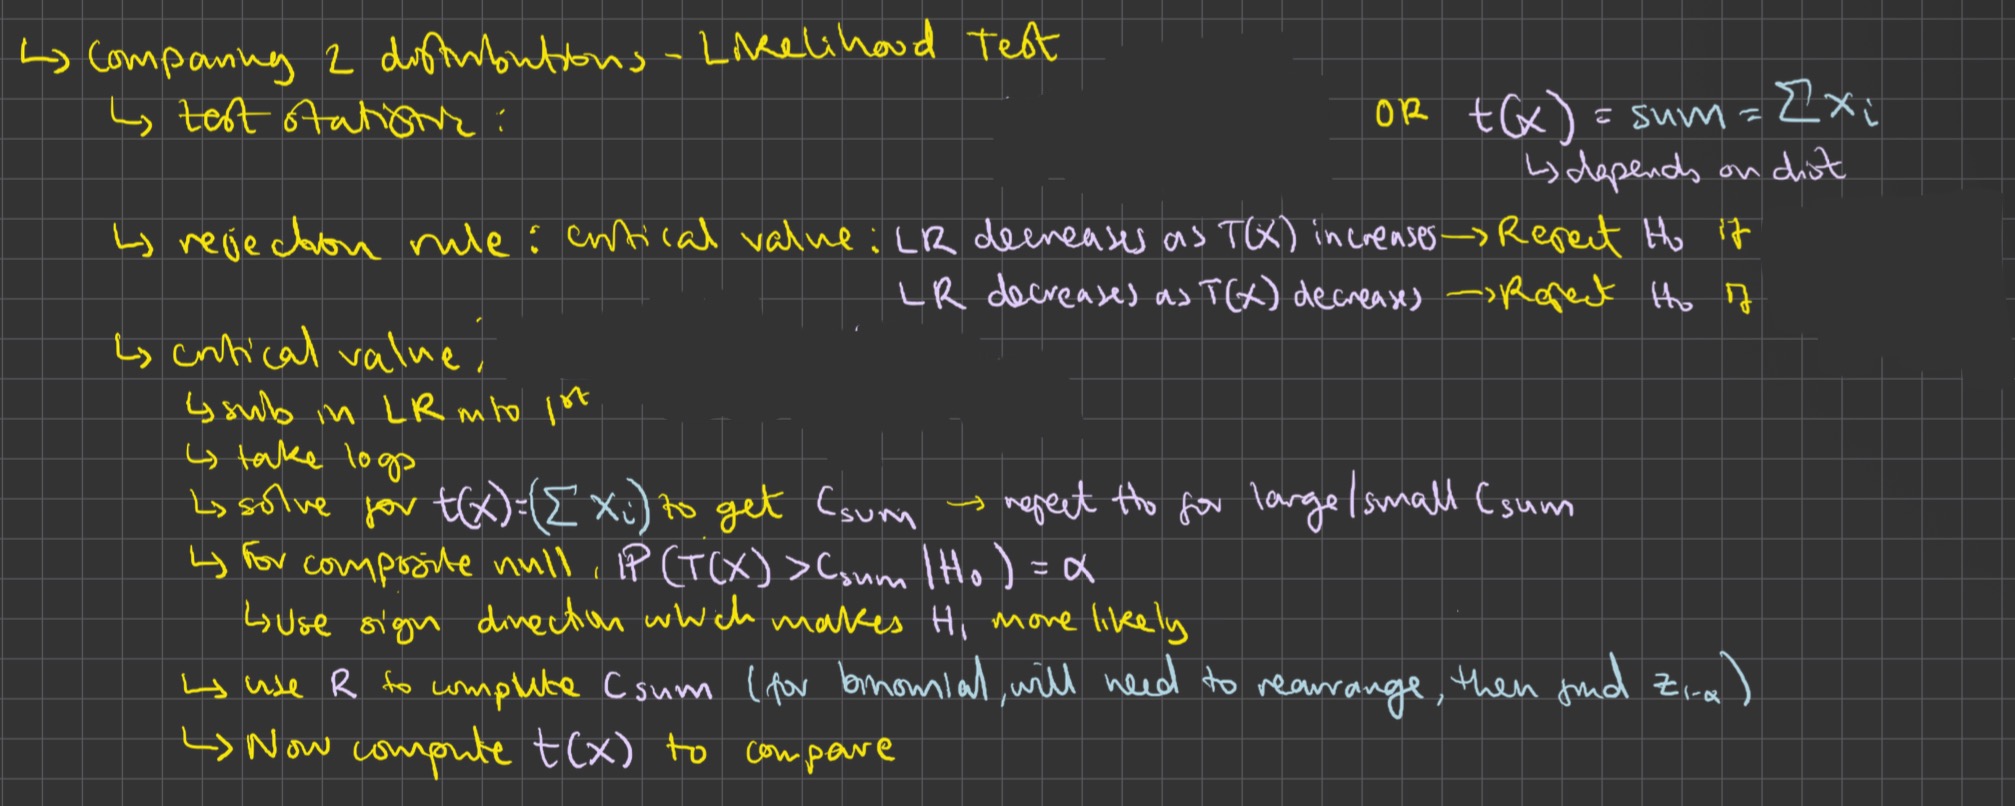 ↳ Comparing 2 distributions - Likelihood Test
↳ test statistic :
OR t(x) = sum = ∑xi
↳ depends on dist
↳ rejection rule : critical value : LR decreases as T(X) increases → Reject H₀ if
LR decreases as T(X) decreases → Reject H₀ if
↳ critical value :
↳ sub in LR into 1st
↳ take logs
↳ solve for t(x)=(∑xi) to get Csum → reject H₀ for large/small Csum
↳ For composite null, ℙ(T(X) > Csum | H₀) = α
↳ Use sign direction which makes H₁ more likely
↳ use R to compute Csum (for binomial, will need to rearrange, then find z₁₋α)
↳ Now compute t(x) to compare